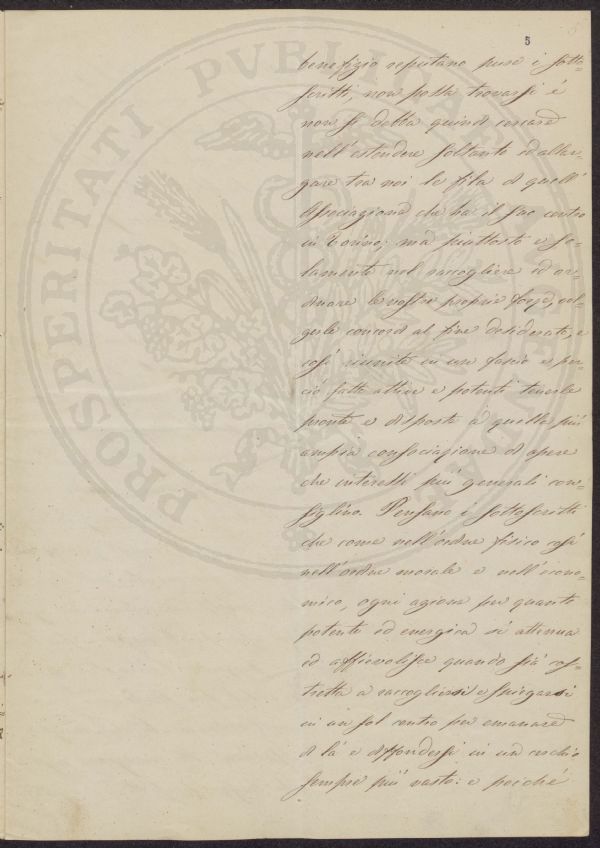 5
benefizio reputano pure i sotto-
scritti, non possa trovarsi e
non si debba quindi cercare
nell'estendere soltanto ed allar-
gare tra noi le fila di quell'
Associazione che ha il suo centro
in Torino; ma piuttosto e so-
lamente nel raccogliere ed or-
dinare le nostre proprie forze, vol-
gerle concordi al fine desiderato, e
così riunite in un fascio e per-
ciò fatte attive e potenti tenerle
pronte e disposte a quella più
ampia consociazione di opere
che interessi più generali con-
siglino. Pensano i sottoscritti
che come nell'ordine fisico così
nell'ordine morale e nell'econo-
mico, ogni azione per quanto
potente ed energica si attenua
ed affievolisce quando sia co-
stretta a raccogliersi e spiegarsi
in un sol centro per emanare
di là e diffondersi in un cerchio
sempre più vasto: e poiché
PROSPERITATI PVBLICAE